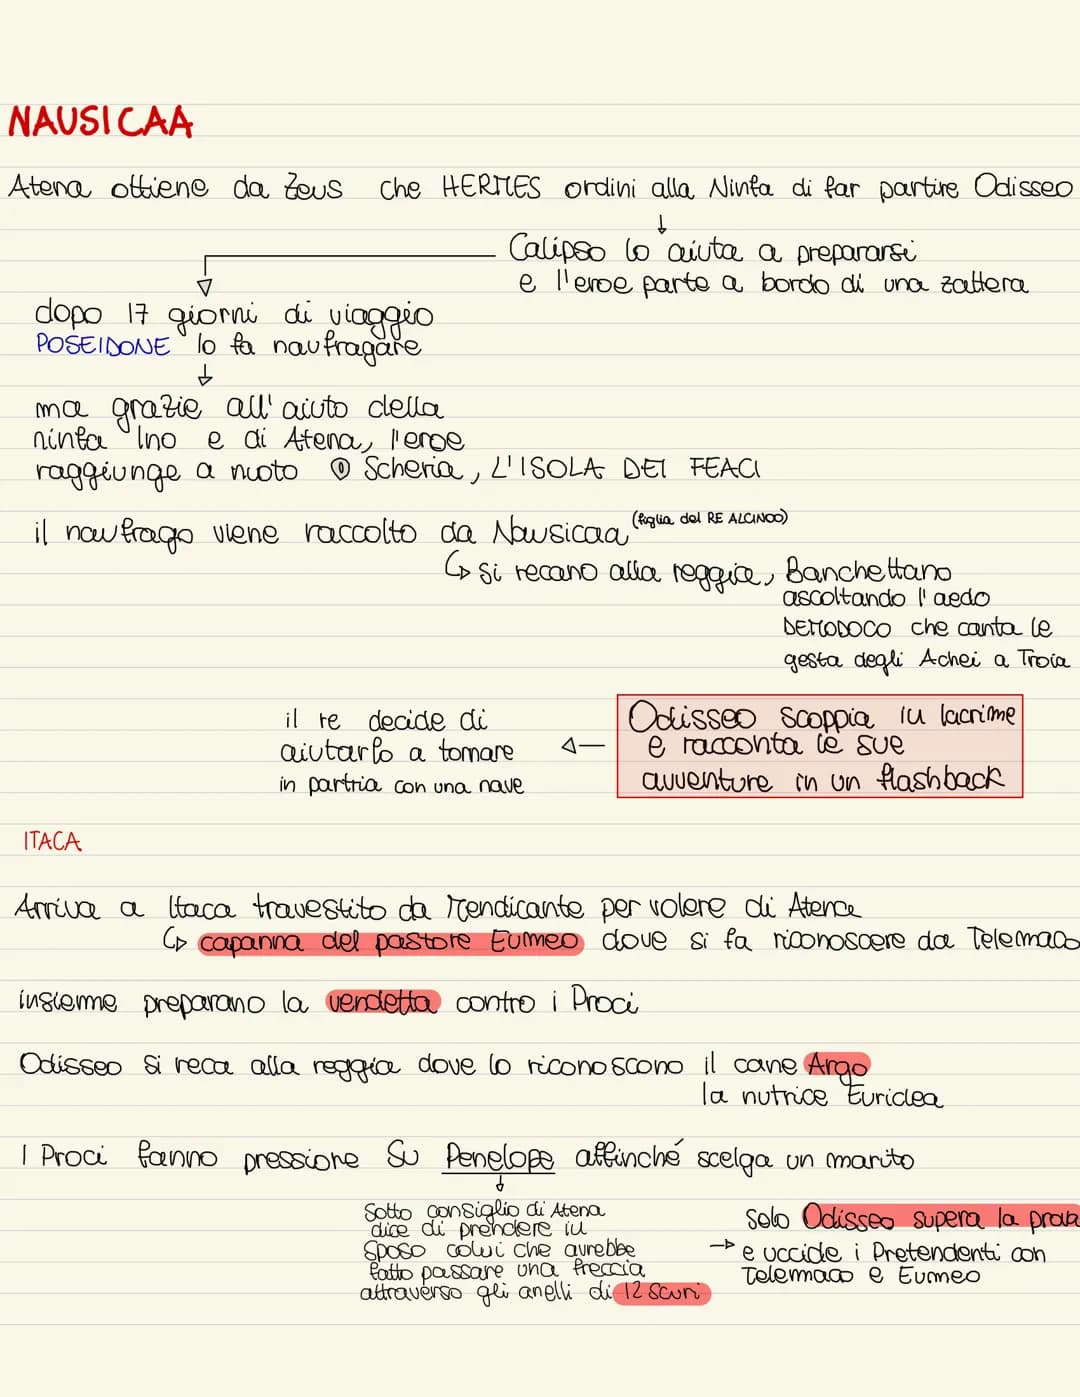 NAUSICAA
Atena ottiene da Zeus che HERMES ordini alla Ninfa di far partire Odisseo
↓
Calipso lo aiuta a prepararsi
e l'eroe parte a bordo di una zattera
dopo 17 giorni di viaggio
POSEIDONE lo fa naufragare
↓
ma grazie all'aiuto della
ninfa Ino e di Atena, l'eroe
raggiunge a nuoto Scheria, L'ISOLA DEI FEACI
il naufrago viene raccolto da Nausicaa (figlia del RE ALCINOO)
↳ si recano alla reggia, Banchettano
ascoltando l'aedo
DEMODOCO che canta le
gesta degli Achei a Troia
Odisseo scoppia in lacrime
e racconta le sue
avventure in un flashback
il re decide di
aiutarlo a tornare
in partria con una nave
ITACA
Arriva a Itaca travestito da Mendicante per volere di Atena
↳ capanna del pastore Eumeo dove si fa riconoscere da Telemaco
insieme preparano la vendetta contro i Proci
Odisseo si reca alla reggia dove lo riconoscono il cane Argo
la nutrice Euriclea
I Proci fanno pressione su Penelope affinché scelga un marito
↓
Sotto consiglio di Atena
dice di prendere in
sposo colui che avrebbe
fatto passare una freccia
attraverso gli anelli di 12 scuri
Solo Odisseo supera la prova
→ e uccide i Pretendenti con
Telemaco e Eumeo